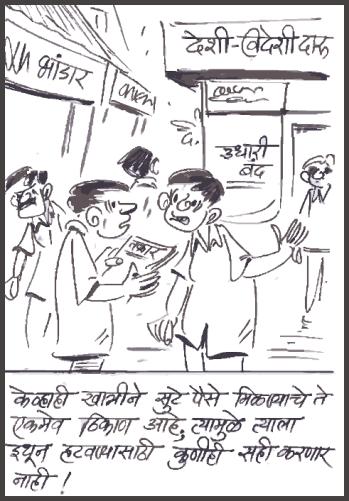 भांडार
देशी-विदेशी दारू
उधारी
बंद
केव्हाही खात्रीने सुटे पैसे मिळण्याचे ते
एकमेव ठिकाण आहे, त्यामुळे त्याला
इथून हटवण्यासाठी कुणीही सही करणार
नाही !